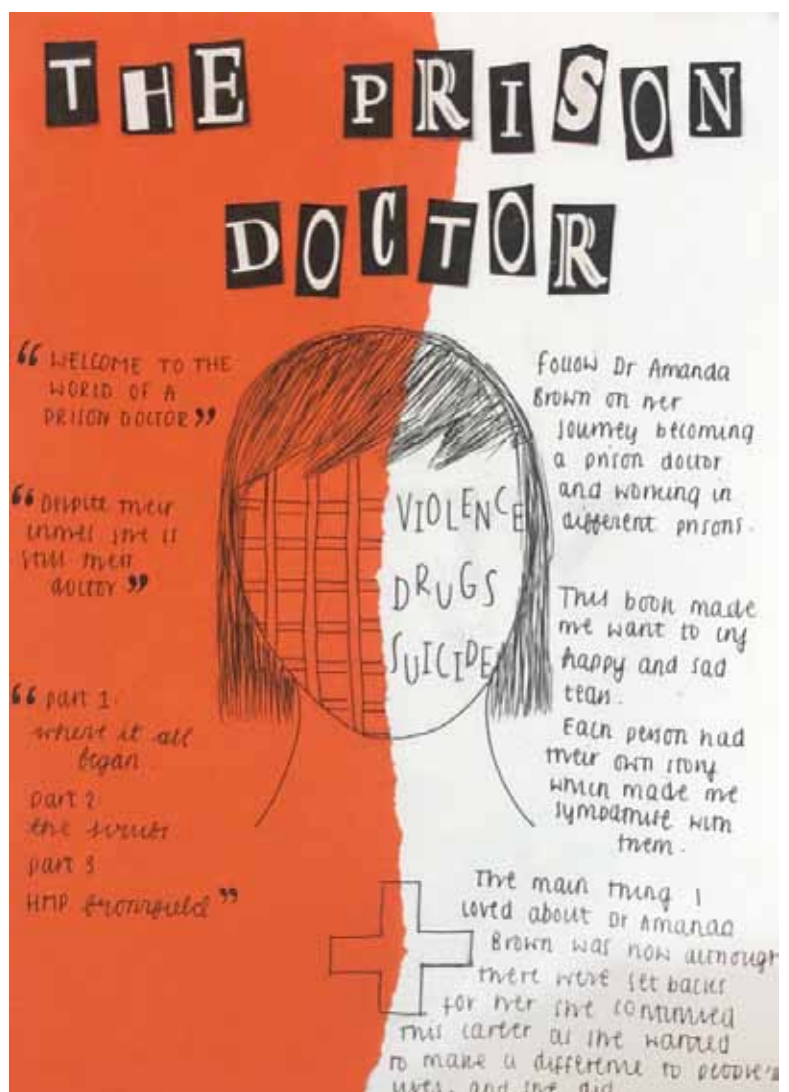 THE PRISON
DOCTOR
“ WELCOME TO THE
WORLD OF A
PRISON DOCTOR ”
“ Despite their
crimes she is
still their
doctor ”
“ part 1
where it all
began
part 2
the scrubs
part 3
HMP Bronzefield ”
VIOLENCE
DRUGS
SUICIDE
Follow Dr Amanda
Brown on her
journey becoming
a prison doctor
and working in
different prisons.
This book made
me want to cry
happy and sad
tears.
Each person had
their own story
which made me
sympathise with
them.
The main thing I
loved about Dr Amanda
Brown was how although
there were set backs
for her she continued
this career as she wanted
to make a difference to people's
lives, and she did